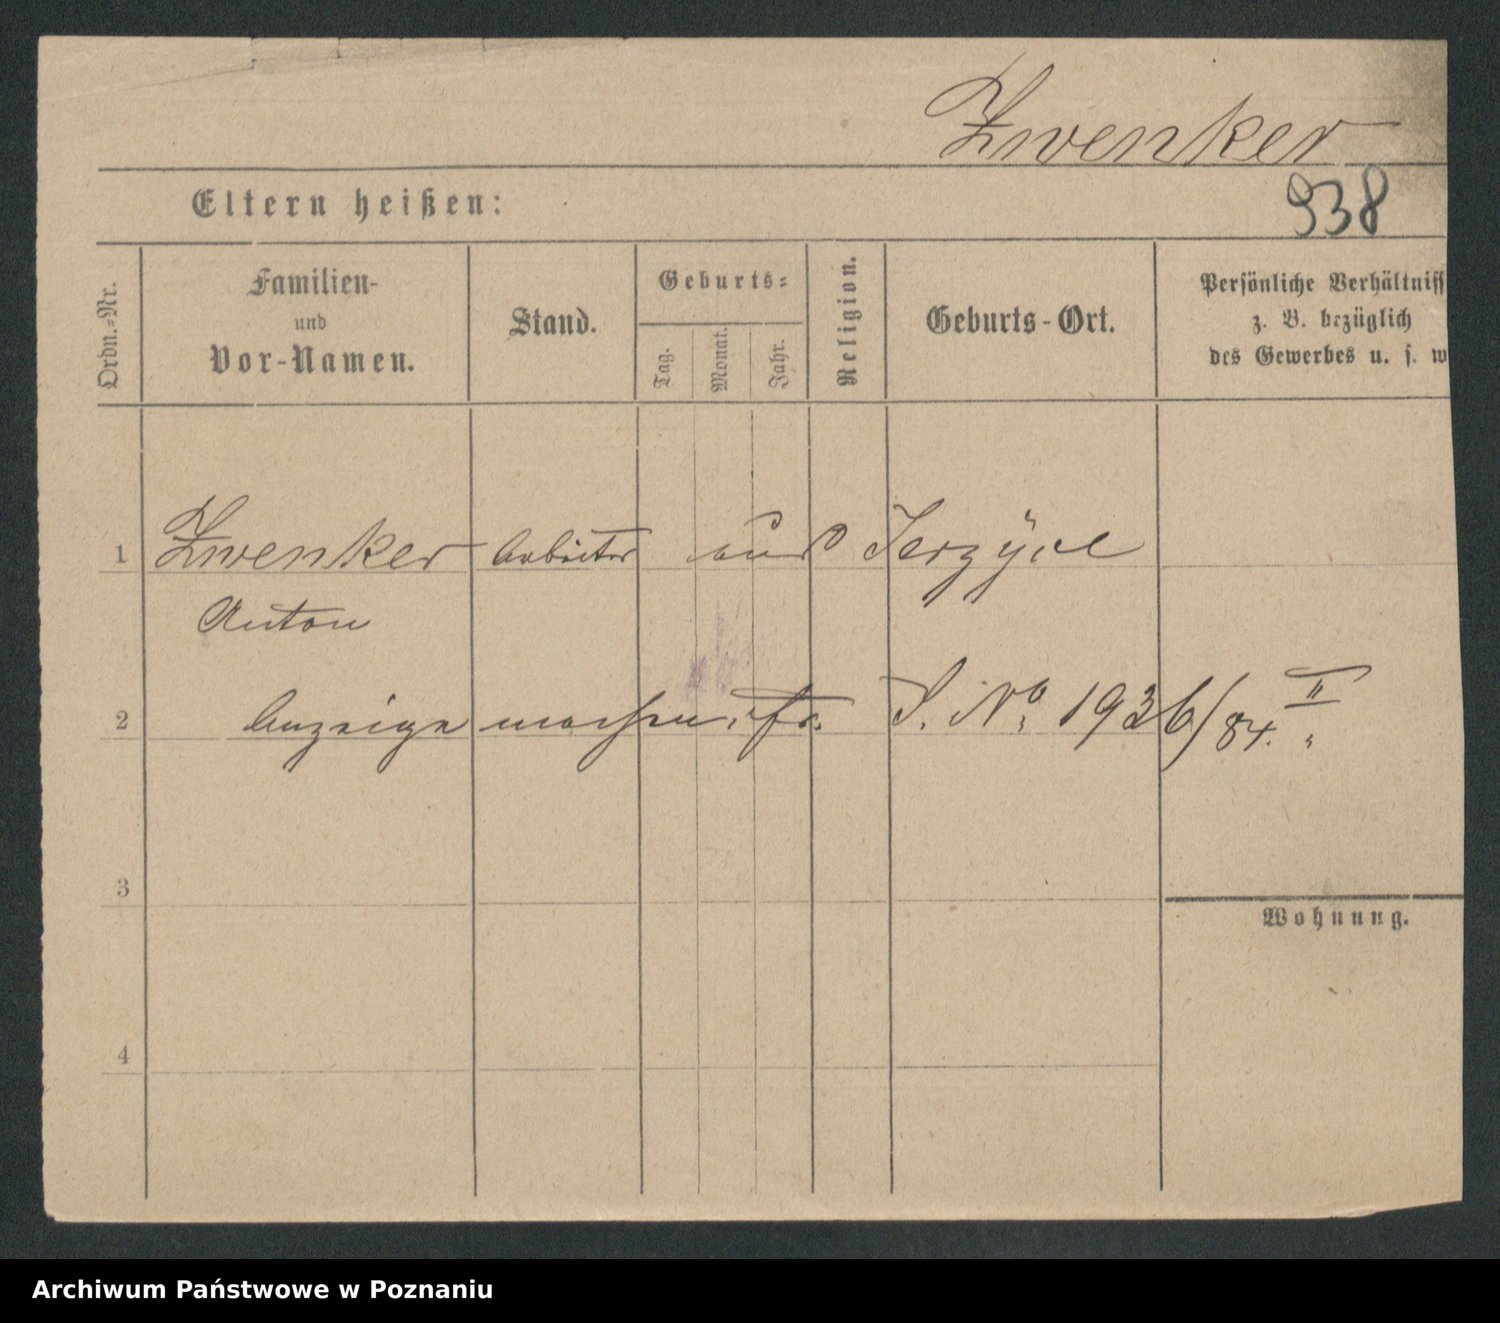 Zwenker
Eltern heißen:
938
Ordn.-Nr.
Familien-
und
Vor-Namen.
Stand.
Geburts-
Tag.
Monat.
Jahr.
Religion.
Geburts-Ort.
Persönliche Verhältniss
z. B. bezüglich
des Gewerbes u. s. w
1 Zwenker Arbeiter aus Jerzyce
Anton
2 Anzeige machen. J. No. 1936/84. II
3
Wohnung.
4
Archiwum Państwowe w Poznaniu